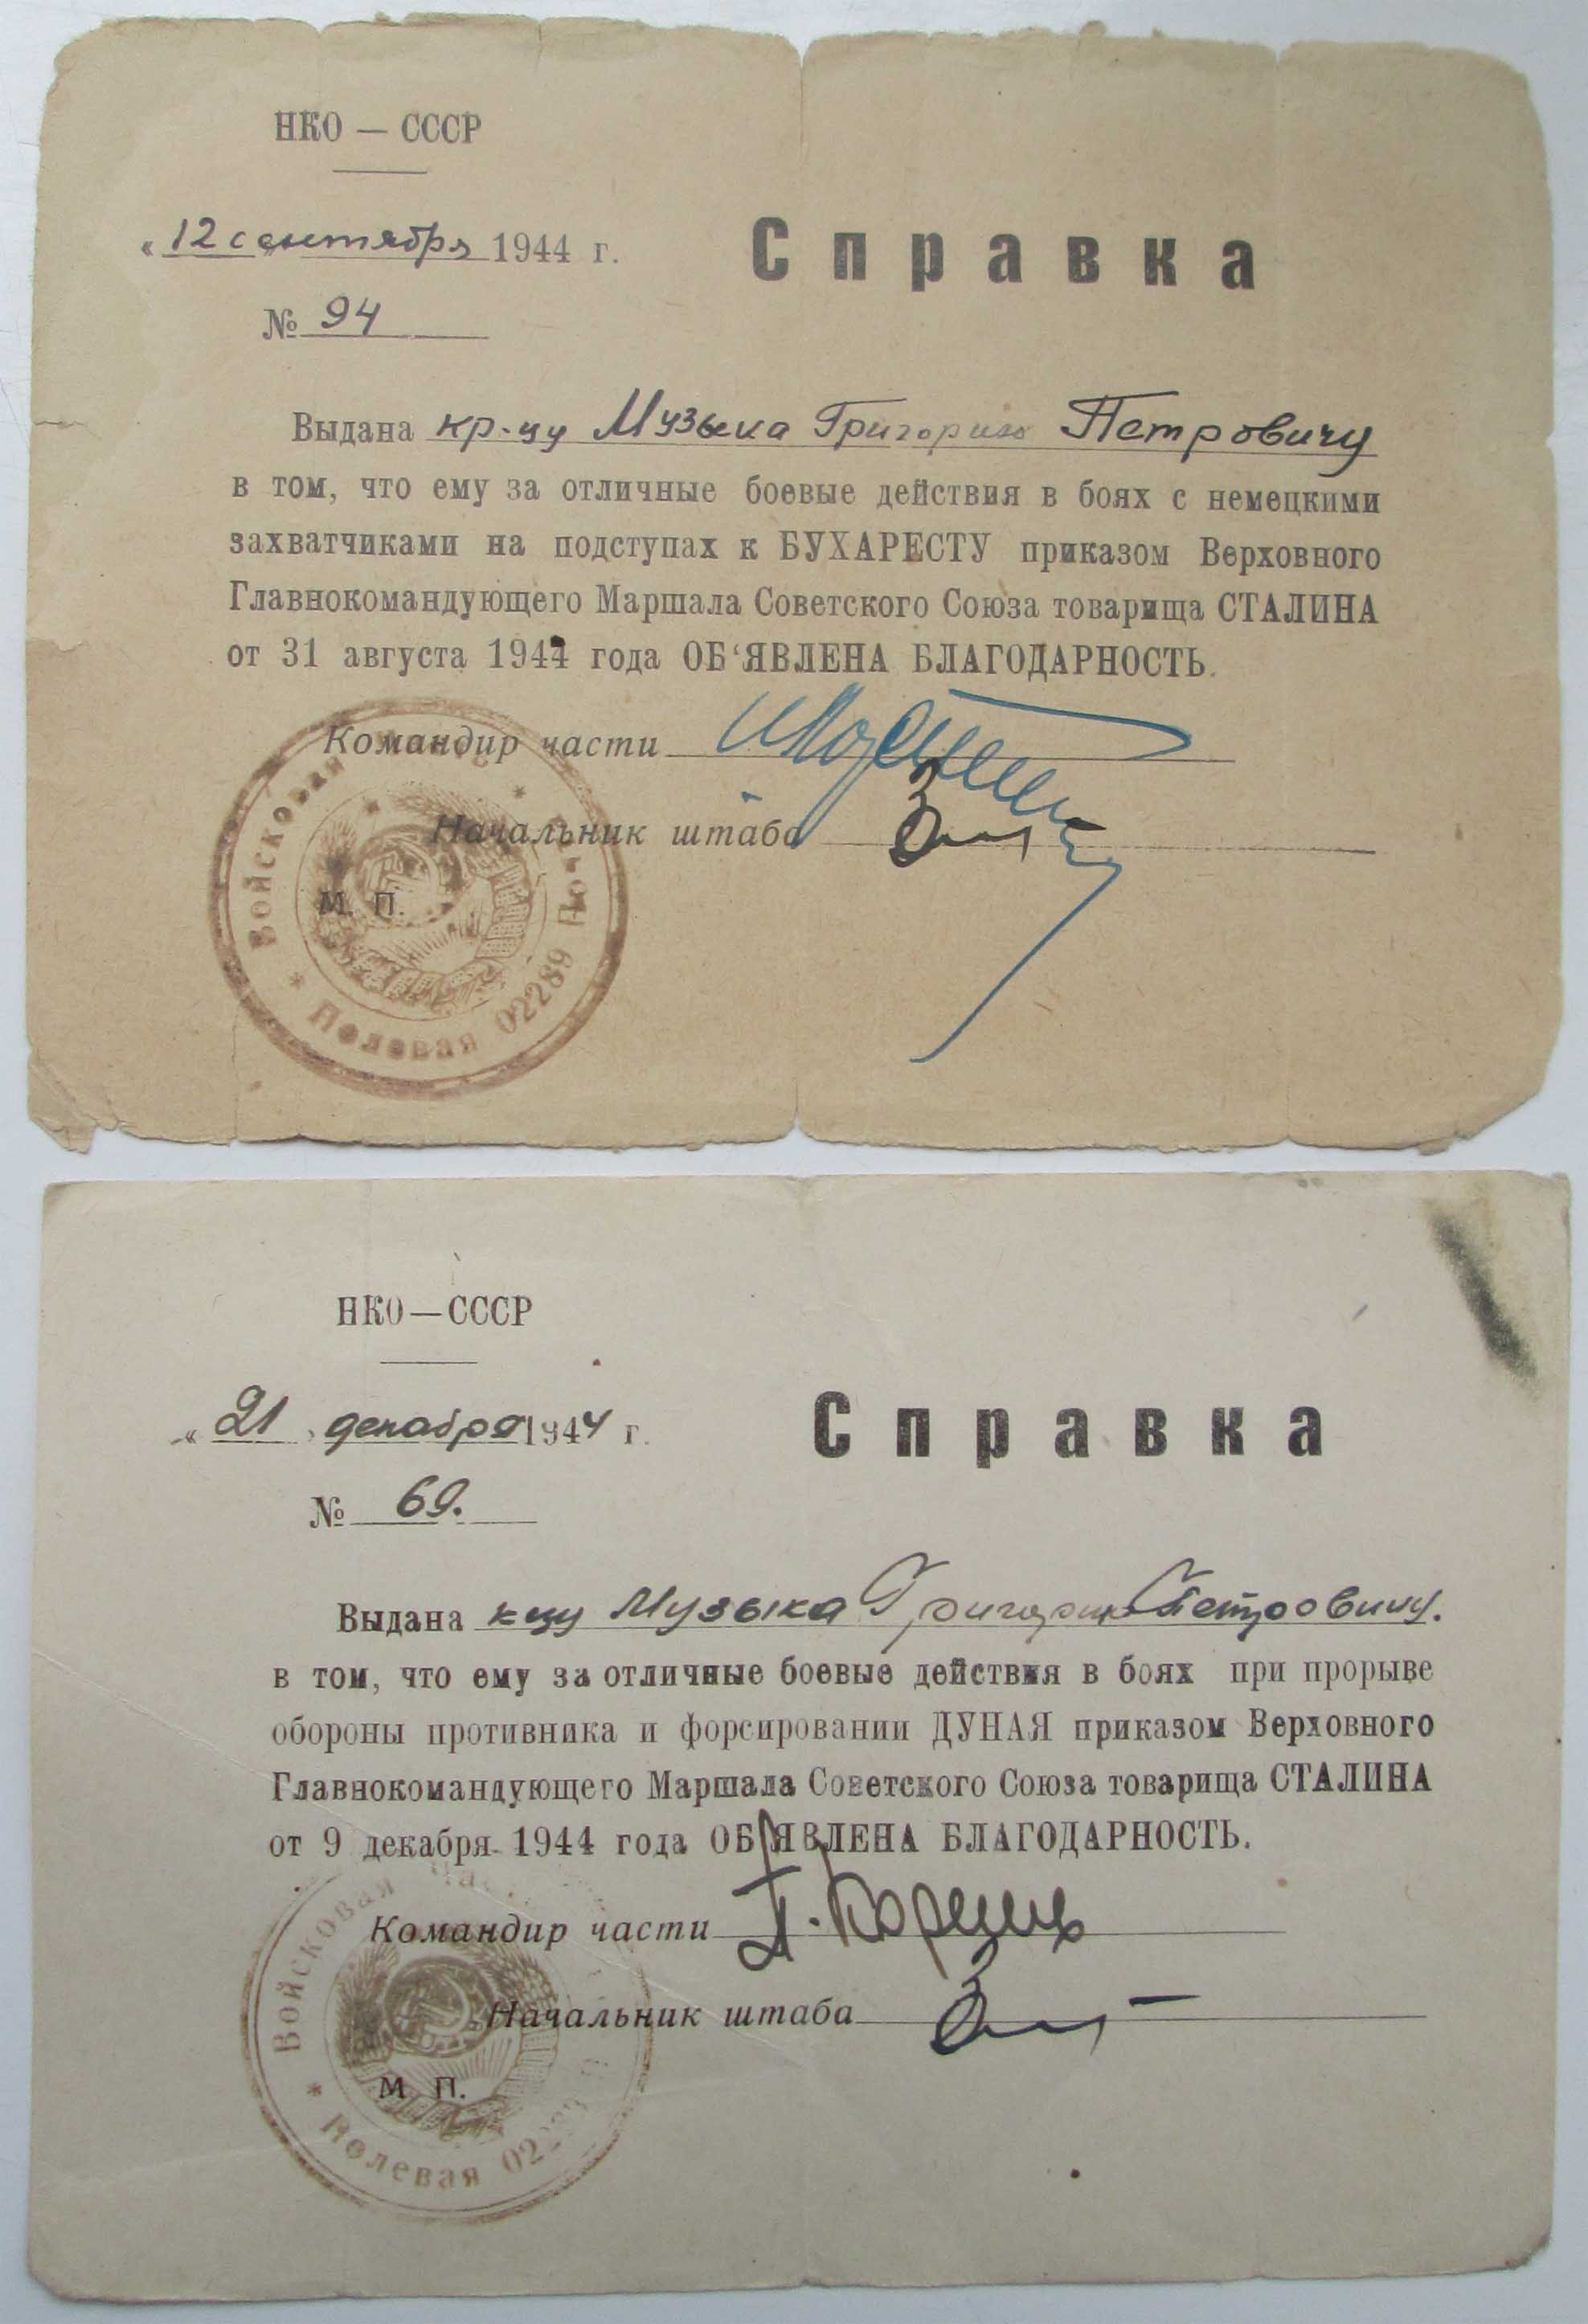 НКО — СССР
« 12 сентября 1944 г.
Справка
№ 94
Выдана кр-цу Музыка Григорию Петровичу
в том, что ему за отличные боевые действия в боях с немецкими
захватчиками на подступах к БУХАРЕСТУ приказом Верховного
Главнокомандующего Маршала Советского Союза товарища СТАЛИНА
от 31 августа 1944 года ОБ‘ЯВЛЕНА БЛАГОДАРНОСТЬ.
Командир части
Начальник штаба
М. П.
Войсковая часть
* Полевая 02289 Поч
НКО — СССР
« 21 » декабря 1944 г.
Справка
№ 69.
Выдана к-цу Музыка Григорию Петровичу.
в том, что ему за отличные боевые действия в боях при прорыве
обороны противника и форсировании ДУНАЯ приказом Верховного
Главнокомандующего Маршала Советского Союза товарища СТАЛИНА
от 9 декабря 1944 года ОБ‘ЯВЛЕНА БЛАГОДАРНОСТЬ.
Командир части
Начальник штаба
М. П.
Войсковая часть
* Полевая